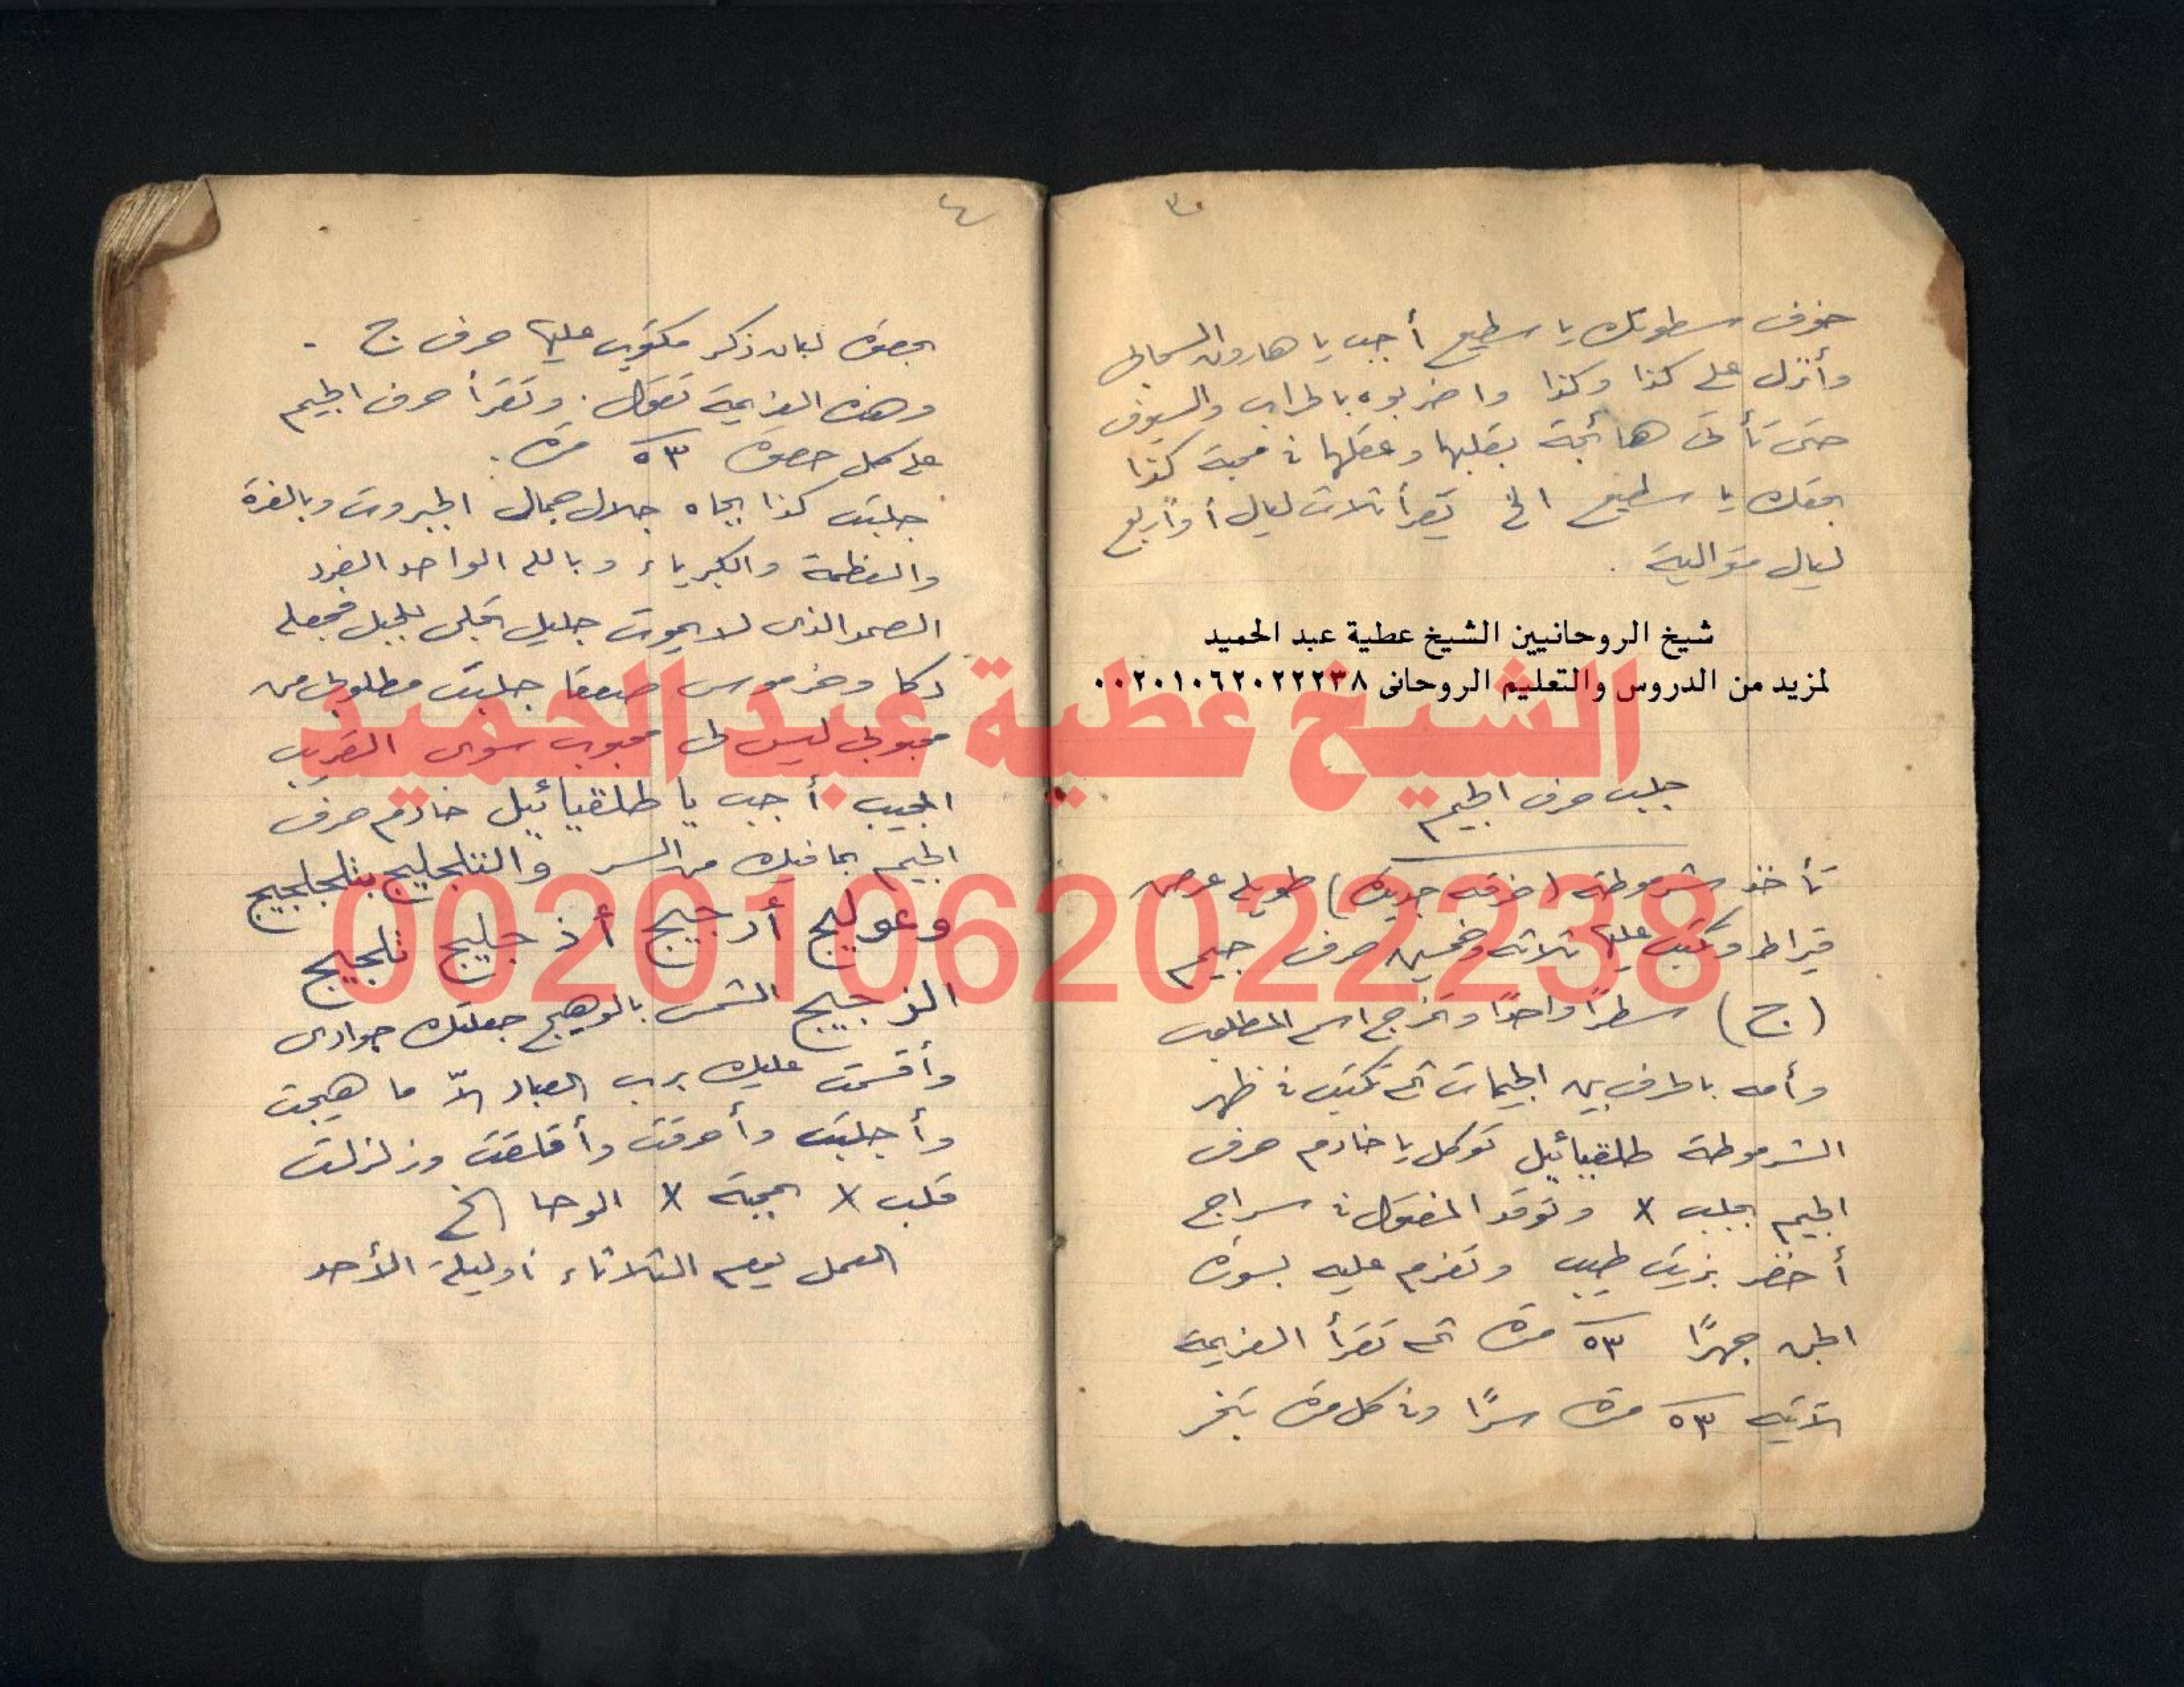 ٣
خوف سطوتك يا سطيع أجب يا هارون السحابى
وأنزل على كذا وكذا واضربوه بالحراب والسيوف
حتى تأتى هائجة بقلبها وعقلها فى محبة كذا
بحقك يا سطيع الخ تقرأ ثلاث ليال أو أربع
ليال متوالية .
شيخ الروحانيين الشيخ عطية عبد الحميد
لمزيد من الدروس والتعليم الروحانى ٠٠٢٠١٠٦٢٠٢٢٢٣٨
جلب حرف الجيم
تأخذ شرموطة (خرقه جديدة) طويله عرض
قيراط وتكتب عليها ثلاثه وخمسين حرف جيم
(ج) سطرًا واحدًا وتخرج اسم المطلوب
وأمه بالحرف بين الجيمات ثم تكتب فى ظهر
الشرموطة طلقيائيل توكل يا خادم حرف
الجيم بجلب x وتوقد المفتول فى سراج
أخضر بزيت طيب وتعزم عليه بسورة
الجن جهرًا ٥٣ مرة ثم تقرأ العزيمة
الآتيه ٥٣ مرة سرًا وفى كل مرة تبخر
٤
بحصوة لبان ذكر مكتوب عليها حرف ج .
وهذه العزيمة تقول . وتقرأ حرف الجيم
على كل حصوة ٥٣ مرة .
جلبت كذا بجاه جلال جمال الجبروت وبالعزة
والعظمة والكبرياء وبالله الواحد الفرد
الصمد الذى لا يموت جليل تجلى للجبل فجعله
دكا وخر موسى صعقا جلبت مطلوبى من
محبوبى ليس لى محبوب سوى القريب
المجيب أجب يا طلقيائيل خادم حرف
الجيم بما فيك من السر
وعوليج أرجيج أذ جليج تلجيج
الزجيج الشمس بالوهيج جعلتك جوادى
وأقسمت عليك برب العباد الّا ما هيجت
وأجلبت وأحرقت وأقلقت وزلزلت
قلب x بمحبة x الوحا الخ
العمل ليوم الثلاثاء أو ليلة الأحد
الشيخ عطية عبد الحميد
00201062022238